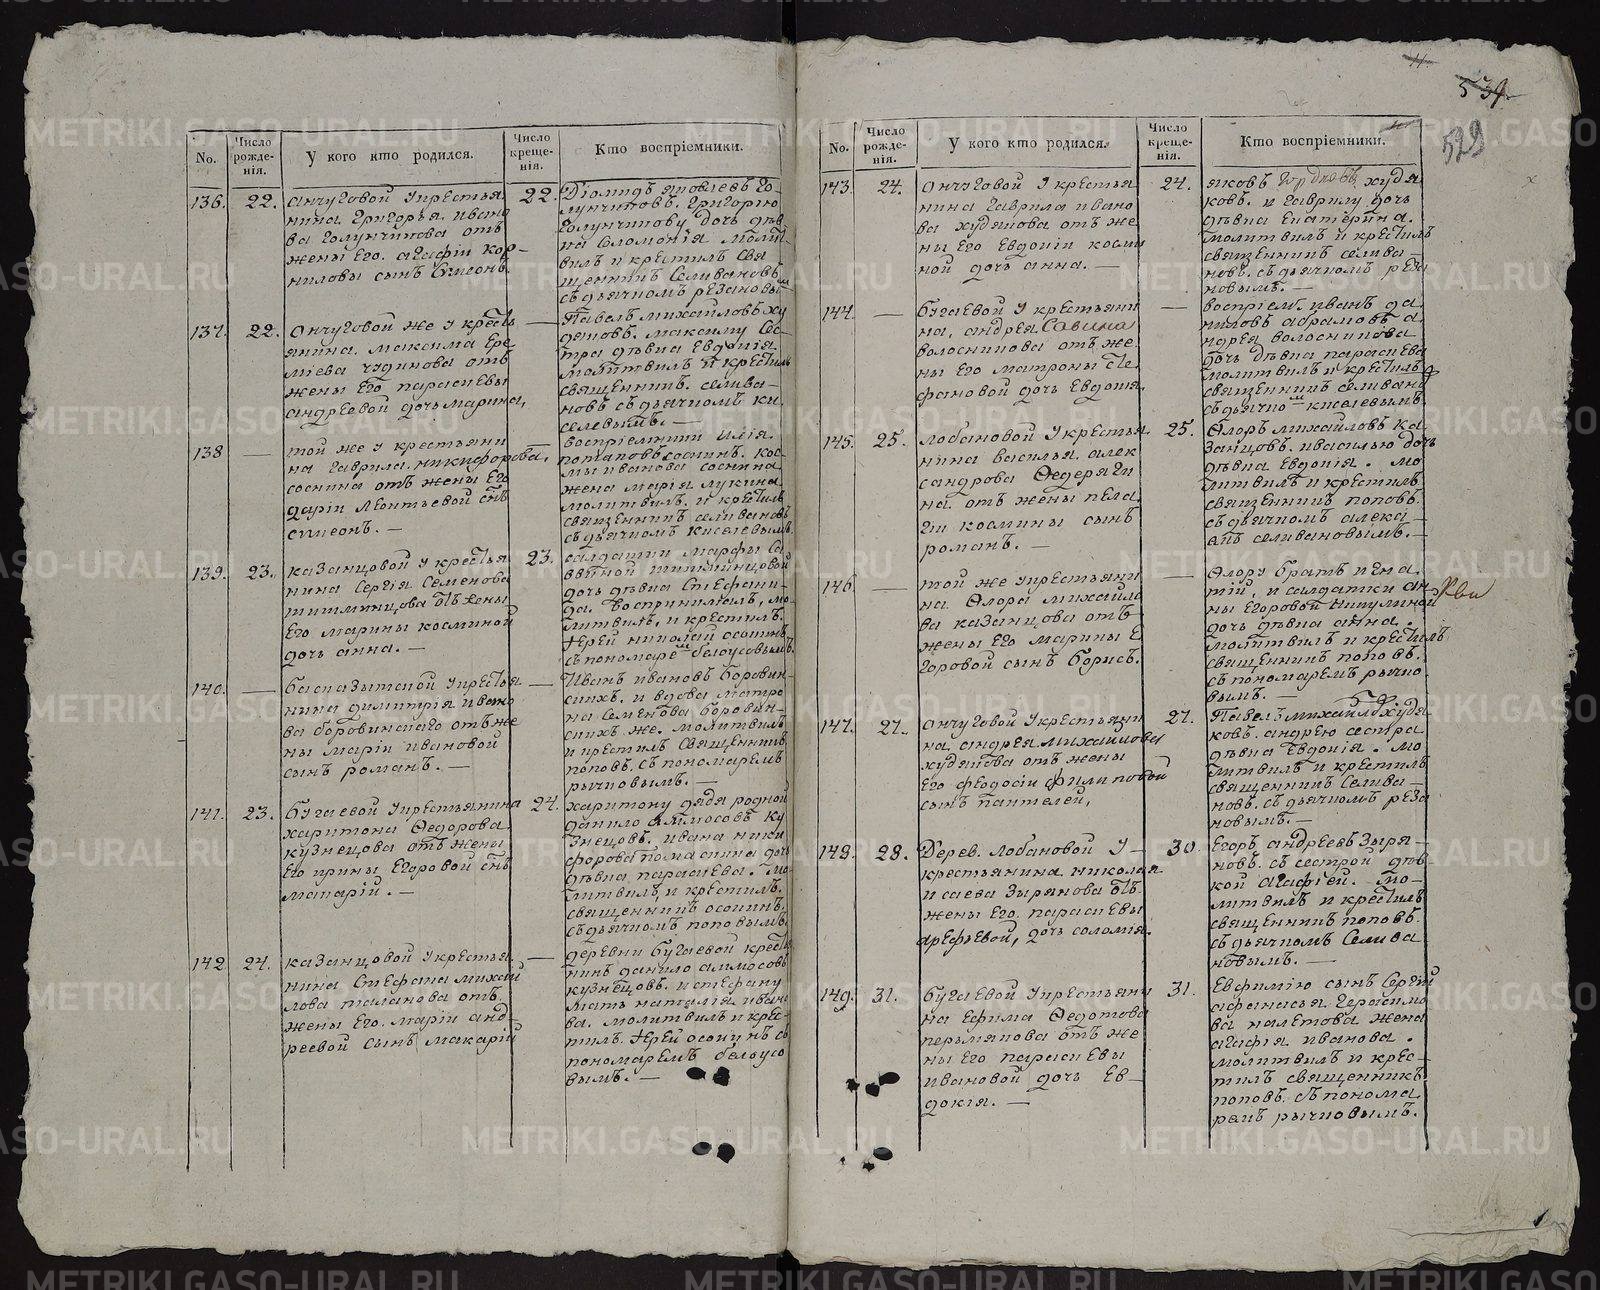 539
529
No.
Число рожде-нія.
У кого кто родился.
Число креще-нія.
Кто воспріемники.
136.
22.
анчуговой у крестья
нина григорья ивано
ва голунчикова отъ
жены его агафіи кор-
ниловы сынъ Симеонъ
22.
Діомидъ яковлевъ Го-
лунчиковъ. григорію
Голунчикову дочь дѣв
ка Соломонія молит
вилъ и крестилъ Свя
щенникъ Селивановъ
съ дьячкомъ резановы
137.
22.
анчуговой же у кресть
янина. максима Ере
міева чудинова отъ
жены его параскевы
андреевой дочь марина,
—
Павелъ михайловъ ху
дяковъ. максиму сес
тра дѣвка Евдокія
молитвилъ и крестилъ
священникъ. селива-
новъ съ дьячкомъ ки
селевымъ. —
138
—
той же у крестьяни
на гаврила. никифорова,
соснина отъ жены Его
даріи Леонтьевой снъ
симеонъ. —
—
воспріемники илія
потаповъ соснинъ. кос
мы иванова соснина
жена марія лукина
молитвилъ. и крестилъ
священникъ селивановъ
съ дьячкомъ киселевымъ
139.
23.
казанцовой у крестья
нина Сергія Семенова
титминцова отъ жены
Его марины косминой
дочь анна. —
23.
салдатки марфы Са
ввиной титминцовой
дочь дѣвка Стефани-
да. воспринимала, мо
литвилъ, и крестилъ.
Іерей николай осокинъ
съ пономаремъ белоусовымъ.
140.
—
баска зыкской у кресья
нина димитрія ивано
ва боровинскаго отъ же
ны маріи ивановой
сынъ романъ. —
—
Иванъ ивановъ боровин-
скихъ. и вдова матро
на Семенова боровин-
скихъ же. молитвилъ
и крестилъ священникъ
поповъ. съ пономаремъ
рычковымъ. —
141.
23.
бугаевой у крестьянина
харитона Ѳедорова
кузнецова отъ жены
Его ирины Егоровой снъ
макарій. —
24.
харитону дядя родной
данило аммосовъ ку
знецовъ. ивана ники
форова томакина дочь
дѣвка параскева. мо
литвилъ, и крестилъ.
священникъ осокинъ.
съ дьячкомъ поповымъ.
142
24.
казанцовой у крестья
нина Стефана михай
лова таланова отъ
жены Его. маріи анд
реевой сынъ макарій
—
деревни бугаевой кресть
нинъ данило аммосовъ
кузнецовъ. и стефану
мать наталія ивано
ва. молитвилъ и крес-
тилъ. Іерей осокинъ съ
пономаремъ белоусо
вымъ. —
No.
Число рожде-нія.
У кого кто родился.
Число креще-нія.
Кто воспріемники.
143.
24.
анчуговой у крестья
нина гаврила ивано
ва худякова отъ же
ны Его Евдокіи косми
ной дочь анна. —
24.
яковъ худя
ковъ. и гаврилу дочь
дѣвка Екатерина.
молитвилъ и крестилъ
священникъ селива-
новъ. съ дьячкомъ реза
новымъ. —
144.
—
бугаевой у крестьяни
на, андрея Савина
волоснікова отъ же
ны Его матроны Сте
фановой дочь Евдокія,
—
воспріем. иванъ да
ниловъ абрамовъ а
ндрея волоснікова
дочь дѣвка параскева
молитвилъ и крестилъ
священникъ селивановъ
съ дьячкомъ киселевымъ
145.
25.
лобановой у крестья
нина василья. алек
сандрова Ѳедеряги
на отъ жены пела
гіи космины сынъ
романъ. —
25.
Ѳлоръ михайловъ ка
занцовъ. и василью дочь
дѣвка Евдокія. мо
литвилъ и крестилъ
священникъ поповъ.
съ дьячкомъ алекса
емъ селивановымъ. —
146.
—
той же у крестьяни
на Ѳлора михайло
ва казанцова отъ
жены его марины Е
горовой сынъ борисъ.
—
Ѳлору братъ игна
тій, и салдатки ан
ны Егоровой никулиной
дочь дѣвка анна.
молитвилъ и крестилъ
священникъ поповъ.
съ пономаремъ рычко
вымъ. —
147.
27.
анчуговой у крестьяни
на, андрея михайлова
худякова отъ жены
Его феодосіи филиповой
сынъ пантелей,
27.
Павелъ михайловъ худя
ковъ. андрею сестра
дѣвка Евдокія. мо
литвилъ и крестилъ
священникъ Селива-
новъ. съ дьячкомъ реза
новымъ. —
148.
28.
Дерев. лобановой у
крестьянина николая
исаева Зырянова отъ
жены его. параскевы
арефьевой, дочь соломія.
30.
Егоръ андреевъ Зыря-
новъ. съ сестрой дѣв
кой агафіей. мо-
литвилъ и крестилъ
священникъ поповъ.
съ дьячкомъ Селива
новымъ. —
149.
31.
бугаевой у крестьяни
на Ефима Ѳедотова
перьмякова отъ же
ны Его параскевы
ивановой дочь Ев-
докія. —
31.
Евфимію сынъ Сергій
афанасья. Герасимо
ва налетова жена
агафія иванова.
молитвилъ и крес-
тилъ священникъ
поповъ. съ понома
ремъ рычковымъ.
METRIKI.GASO-URAL.RU